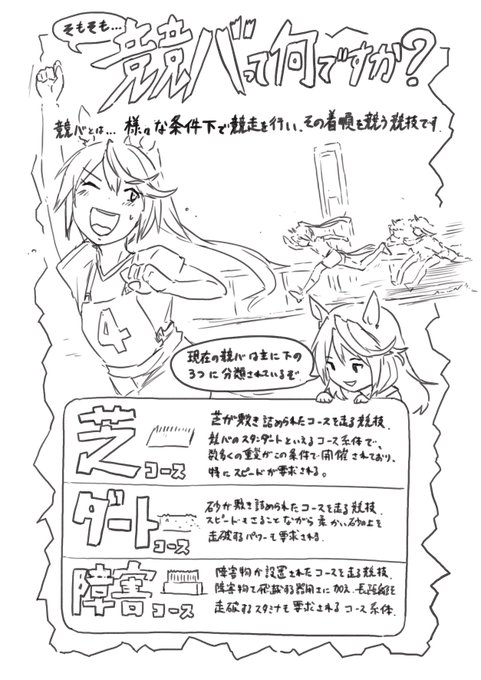 そもそも…
競バって何ですか？
競バとは… 様々な条件下で競走を行い、その着順を競う競技です.
4
現在の競バは主に下の
3つに分類されているぞ.
芝コース
芝が敷き詰められたコースを走る競技.
競バのスタンダートといえるコース系体で、
数多くの重賞がこの条件で開催されており、
特にスピードが要求される。
ダートコース
砂が敷き詰められたコースを走る競技.
スピードもさることながら柔かい砂の上を
走破するパワーも要求される.
障害コース
障害物が設置されたコースを走る競技.
障害物を飛越する器用さに加え、長距離を
走破するスタミナも要求されるコース系体.